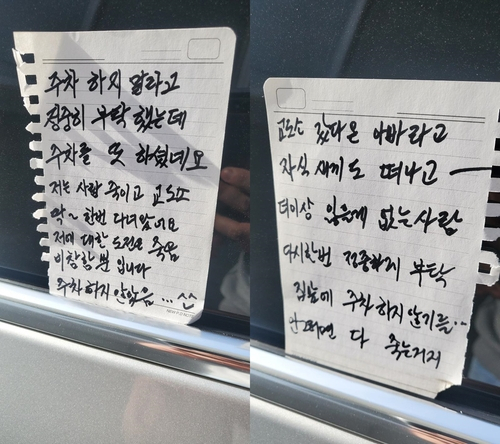 주차 하지 말라고
정중히 부탁 했는데
주차를 또 하셨네요
저는 사람 죽이고 교도소
딱~ 한번 다녀왔어요
저에 대한 도전은 죽음
비참할 뿐 입니다
주차 하지 않았음 ... ^^
교도소 갔다온 아빠라고
자식 새끼도 떠나고
더이상 잃을게 없는 사람
다시한번 정중하게 부탁
집앞에 주차 하지 않기를..
안그러면 다 죽는거지